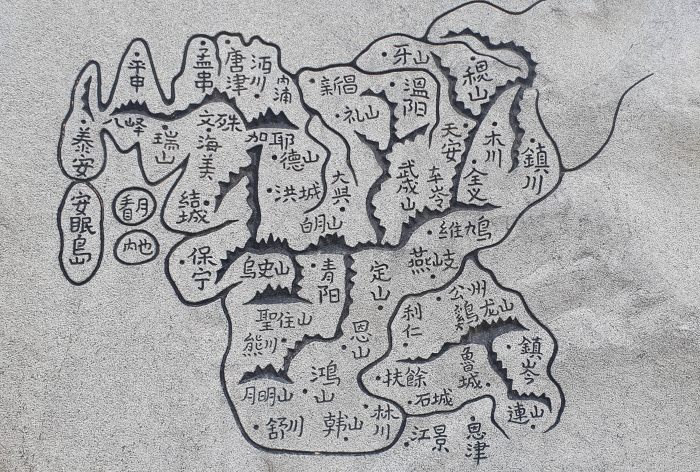 牙山
平申
孟串
唐津
沔川
内浦
新昌
溫阳
稷山
礼山
八峰
瑞山
文殊
海美
加耶
德山
天安
木川
鎮川
泰安
大興
武成山
車岺
全义
結城
洪城
看月
白月山
維鳩
安眠島
内也
保宁
烏史山
青阳
定山
燕岐
公州
鷄龙山
聖住山
利仁
熊川
恩山
魯城
鎮岑
扶餘
月明山
鴻山
石城
連山
舒川
韩山
林川
江景
恩津